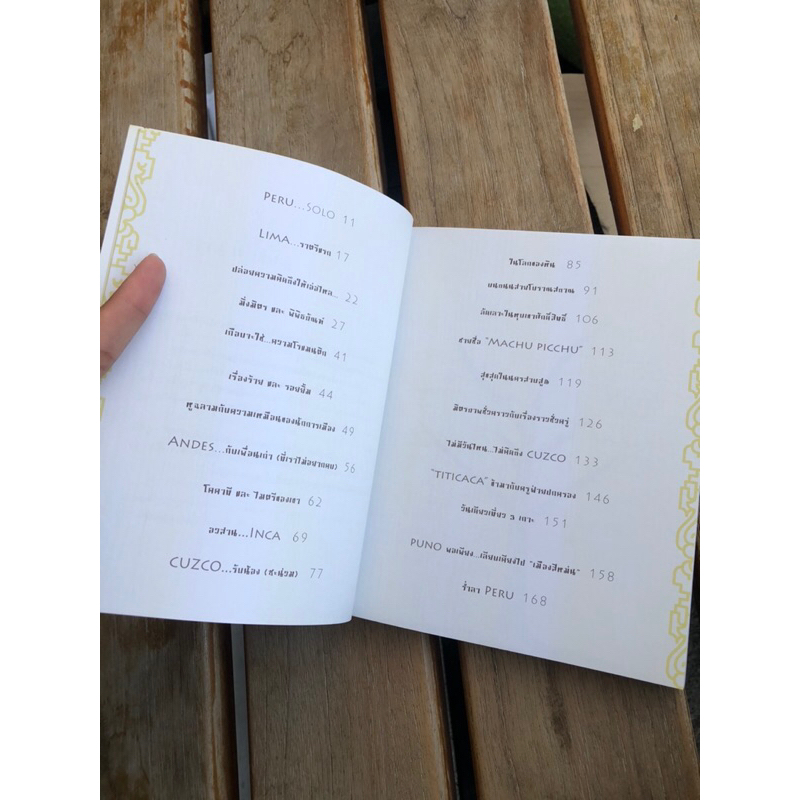 PERU...SOLO 11
LIMA...ราชธิราช 17
ปล่อยความคิดถึงให้เอ่อไหล... 22
มิ่งมิตร และ พิพิธภัณฑ์ 27
เกือบจะใช่...ความโรแมนติก 41
เรื่องร้าย และ รอยยิ้ม 44
ปูฉลามกับความเหมือนของนักการเมือง 49
ANDES...กับเพื่อนเก่า (ที่เราไม่อยากพบ) 56
โคคาที และ ไมตรีของเขา 62
อวสาน...INCA 69
CUZCO...รับน้อง (สะบ่อม) 77
ในโลกของหิน 85
แนกแนสวนโบราณสถาน 91
ลัดเลาะในหุบเขาศักดิ์สิทธิ์ 106
สายชื่อ "MACHU PICCHU" 113
สุขสุดในนครสาบสูญ 119
มิตรภาพชั่วคราวกับเรื่องราวชั่วครู่ 126
ไม่มีวันไหน...ไม่คิดถึง CUZCO 133
"TITICACA" ชีวากับครูฝ่ายปกครอง 146
วันเดียวเที่ยว 3 เกาะ 151
PUNO พอเพียง...เคียงเคียงไป "เมืองสีหม่น" 158
ร่ำลา PERU 168